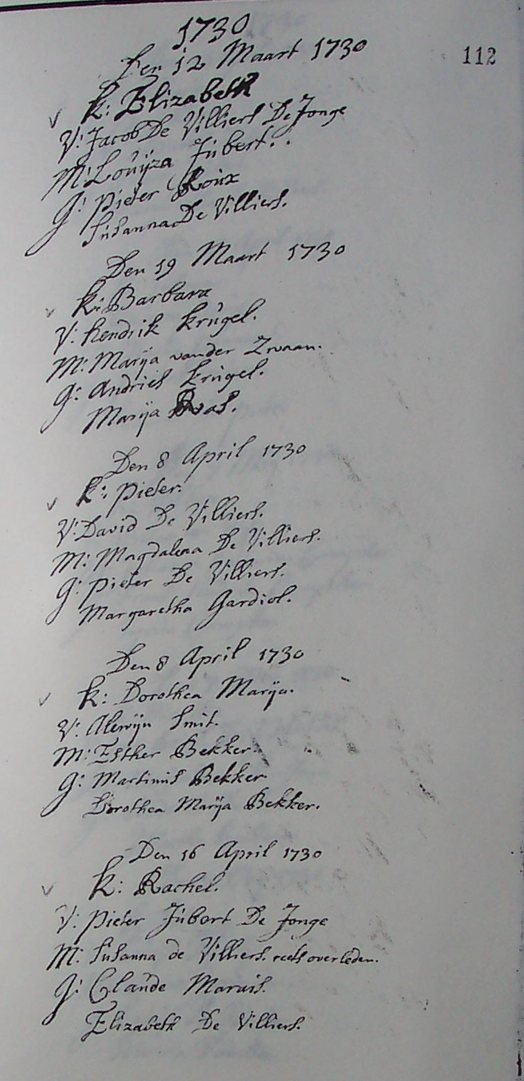 1730
112
Den 12 Maart 1730
K: Elizabeth
V: Jacob De Villiers De Jonge
M: Louijza Jubert.
G: Pieter Roux
Susanna De Villiers.
Den 19 Maart 1730
K: Barbara
V: Hendrik Krugel.
M: Marija vander Zwaan.
G: Andries Krugel.
Marija Ras.
Den 8 April 1730
K: Pieter.
V: David De Villiers.
M: Magdalena De Villiers.
G: Pieter De Villiers.
Margaretha Gardiol.
Den 8 April 1730
K: Dorothea Marija.
V: Alewijn Smit.
M: Esther Bekker
G: Martinus Bekker
Dorothea Marija Bekker.
Den 16 April 1730
K: Rachel.
V: Pieter Jubert De Jonge
M: Susanna de Villiers. reets overleden.
G: Claude Marais.
Elizabeth De Villiers.